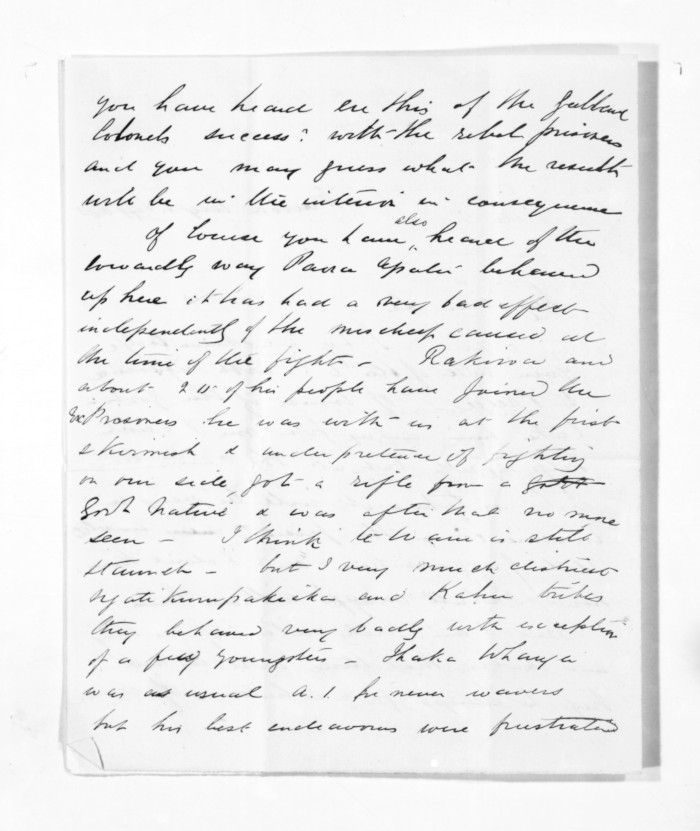 you have heard ere this of the Gallant
Colonels success? with the rebel prisoners
and you may guess what the result
will be in the interior in consequence
Of course you have also heard of the
cowardly way Paora Apatu behaved
up here it has had a very bad effect
independently of the mischief caused at
the time of the fight - Rakiroa and
about 20 of his people have Joined the
Ex Prisoners he was with us at the first
skirmish & under pretence of fighting
on our side, got a rifle from a Govt
Govt Native & was after that no more
seen - I think te Waru is still
staunch - but I very much distrust
Ngatikurupakiaka and Kahu tribes
they behaved very badly with exception
of a few youngsters - Ihaka Whanga
was as usual A.1. he never wavers
but his best endeavours were frustrated